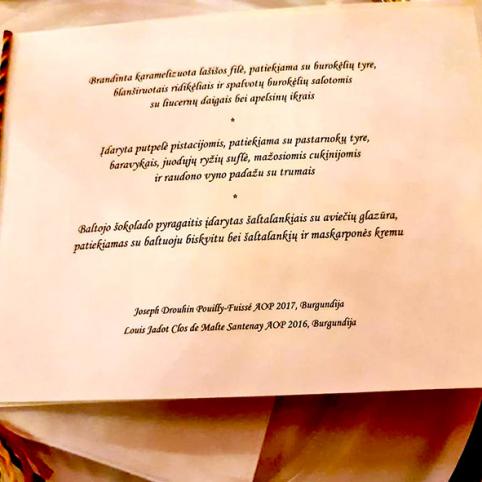 Brandinta karamelizuota lašišos filė, patiekiama su burokėlių tyre,
blanširuotais ridikėliais ir spalvotų burokėlių salotomis
su liucernų daigais bei apelsinų ikrais
*
Įdaryta putpelė pistacijomis, patiekiama su pastarnokų tyre,
baravykais, juodųjų ryžių suflė, mažosiomis cukinijomis
ir raudono vyno padažu su trumais
*
Baltojo šokolado pyragaitis įdarytas šaltalankiais su aviečių glazūra,
patiekiamas su baltuoju biskvitu bei šaltalankių ir maskarponės kremu
Joseph Drouhin Pouilly-Fuissé AOP 2017, Burgundija
Louis Jadot Clos de Malte Santenay AOP 2016, Burgundija